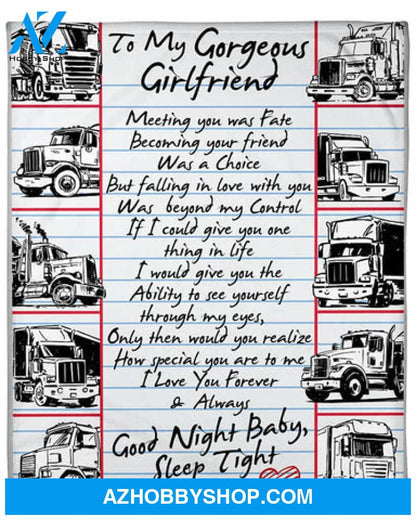 AZ
HOBBYSHOP
To My Gorgeous
Girlfriend
Meeting you was Fate
Becoming your friend
Was a Choice
But falling in love with you
Was beyond my Control
If I could give you one
thing in life
I would give you the
Ability to see yourself
through my eyes,
Only then would you realize
How special you are to me
I Love You Forever
& Always
Good Night Baby,
Sleep Tight
AZHOBBYSHOP.COM